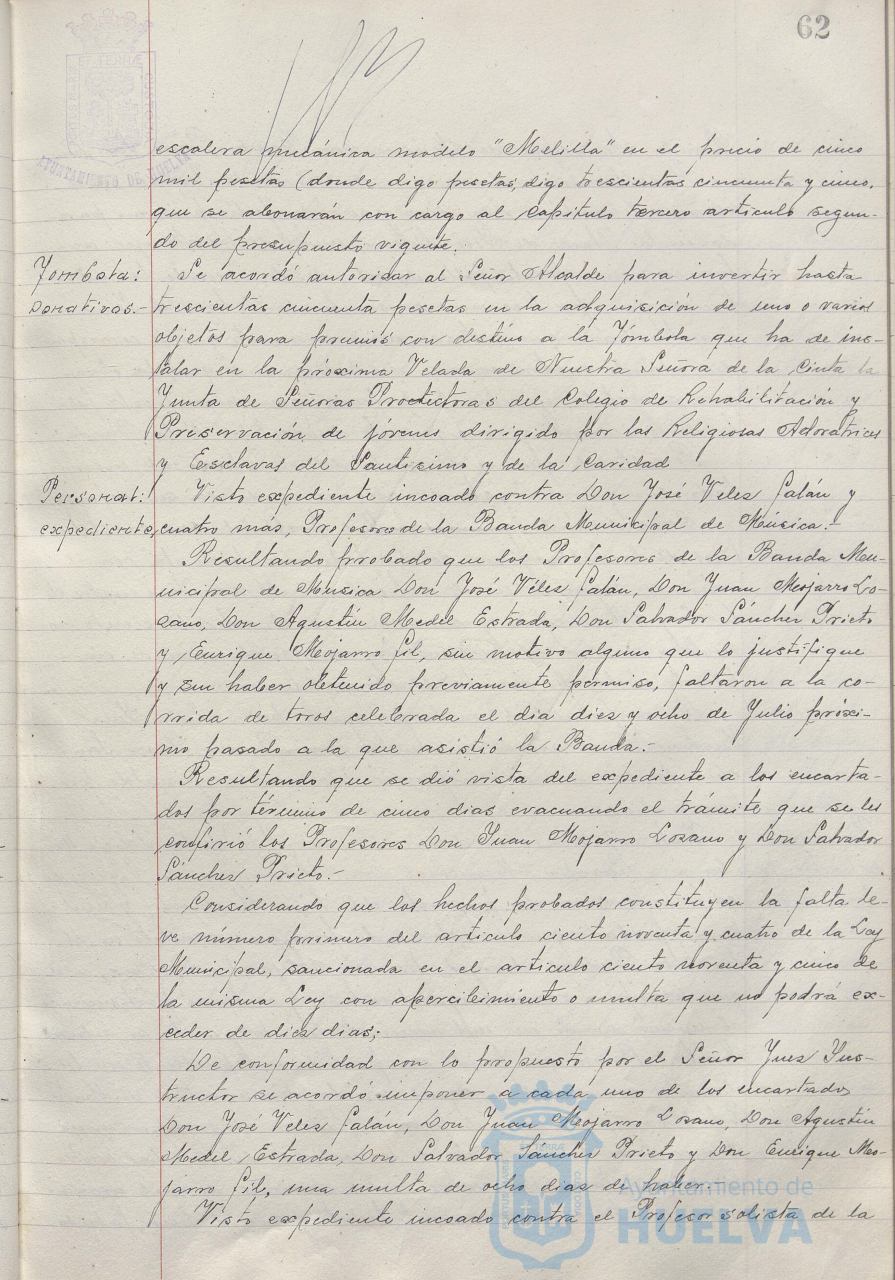 62
AYUNTAMIENTO DE HUELVA
escalera mecánica modelo "Melilla" en el precio de cinco
mil pesetas (donde digo pesetas, digo trescientas cincuenta y cinco,
que se abonarán con cargo al Capítulo tercero articulo segun-
do del presupuesto vigente.
Tómbola:
donativos.-
Se acordó autorizar al Señor Alcalde para invertir hasta
trescientas cincuenta pesetas en la adquisición de uno o varios
objetos para premios con destino a la Tómbola que ha de ins-
talar en la próxima Velada de Nuestra Señora de la Cinta la
Junta de Señoras Protectoras del Colegio de Rehabilitación y
Preservación de jóvenes dirigido por las Religiosas Adoratrices
y Esclavas del Santisimo y de la Caridad
Personal:
expediente,
Visto expediente incoado contra Don José Velez Galán y
cuatro más, Profesores de la Banda Municipal de Música.-
Resultando probado que los Profesores de la Banda Mu-
nicipal de Musica Don José Vélez Galán, Don Juan Mojarro Lo-
zano, Don Agustín Medel Estrada, Don Salvador Sánchez Prieto
y Enrique Mojarro Gil, sin motivo alguno que lo justifique
y sin haber obtenido previamente permiso, faltaron a la co-
rrida de toros celebrada el dia diez y ocho de Julio próxi-
mo pasado a la que asistió la Banda.-
Resultando que se dió vista del expediente a los encarta-
dos por término de cinco dias evacuando el trámite que se les
confirió los Profesores Don Juan Mojarro Lozano y Don Salvador
Sánchez Prieto.-
Considerando que los hechos probados constituyen la falta le-
ve número primero del articulo ciento noventa y cuatro de la Ley
Municipal, sancionada en el articulo ciento noventa y cinco de
la misma Ley con apercibimiento o multa que no podrá ex-
ceder de diez dias;
De conformidad con lo propuesto por el Señor Juez Ins-
tructor se acordó imponer a cada uno de los encartados
Don José Velez Galán, Don Juan Mojarro Lozano, Don Agustín
Medel Estrada, Don Salvador Sánchez Prieto y Don Enrique Mo-
jarro Gil, una multa de ocho dias de haber.-
Visto expediente incoado contra el Profesor solista de la
Ayuntamiento de
HUELVA